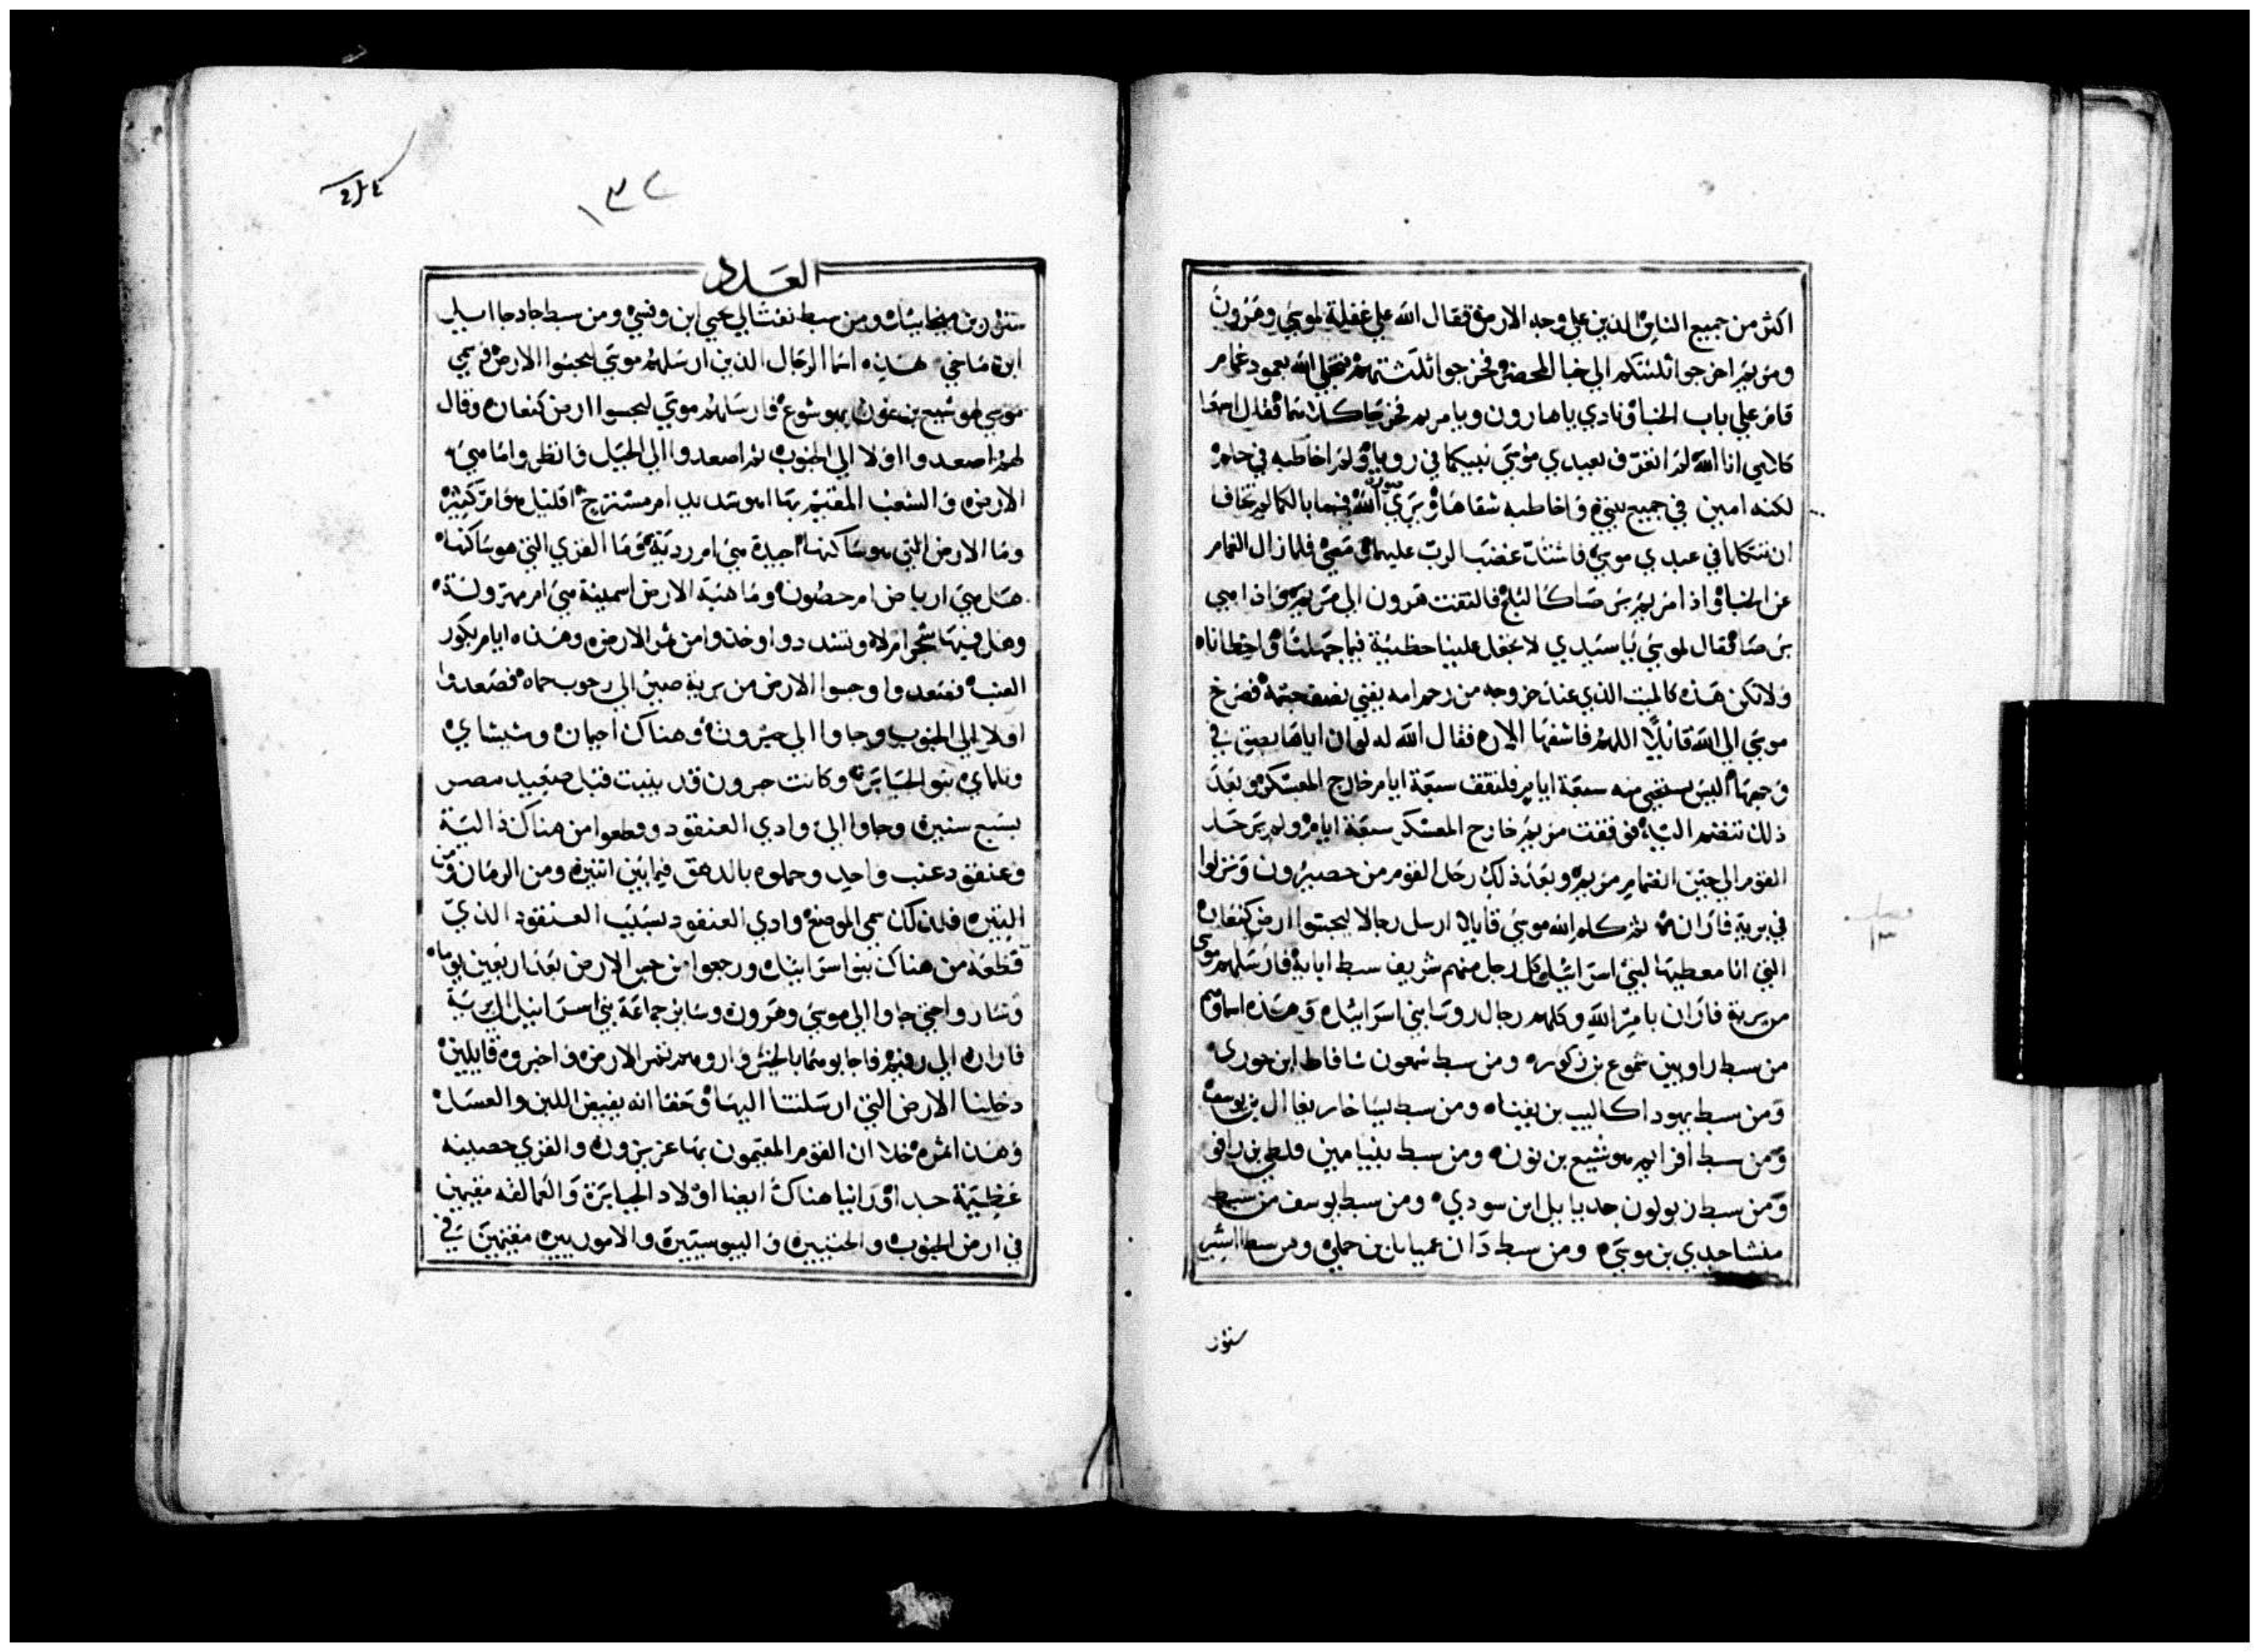 اكثر من جميع الناس الذين علي وجه الارض فقال الله علي غفلة لموسي وهرون
ومريم اخرجوا ثلثتكم الي خبا المحضر فخرجوا ثلثتهم فتجلي الله بعمود غمام
قام علي باب الخبا ونادي يا هارون ويا مريم فخرجا كلاهما فقال اسمعا
كلامي انا الله لم اتعرف بعبدي موسي نبيكما في رويا ولم اخاطبه في حلم
لكنه امين في جميع بيتي واخاطبه شفاها ويري صورة الله فما بالكما لم تخافا
ان تتكلما في عبدي موسي فاشتد غضب الرب عليهما ومضي فلما زال الغمام
عن الخبا واذا مريم برصا كالثلج فالتفت هرون الي مريم واذا هي
برصا فقال لموسي يا سيدي لا تجعل علينا خطية فيما جهلنا واخطاناه
ولا تكن هذه كالميت الذي عند خروجه من رحم امه يفني نصف جسمه فصرخ
موسي الي الله قايلا اللهم فاشفها الان فقال الله له لو ان اباها بصق في
وجهها اليس يستحي منه سبعة ايام فلتقف سبعة ايام خارج المعسكر وبعد
ذلك تنضم اليه فوقفت مريم خارج المعسكر سبعة ايام ولم يرحل
القوم الي حين انضمام مريم وبعد ذلك رحل القوم من حصيرون ونزلوا
في برية فاران ثم كلم الله موسي قايلا ارسل رجالا ليجسوا ارض كنعان
فصل ١٣
التي انا معطيها لبني اسرائيل كل رجل منهم شريف سبط ابايه فارسلهم موسي
من برية فاران بامر الله وكلهم رجال روسا بني اسرائيل وهذه اسماوهم
من سبط راوبين شموع بن زكور ومن سبط شمعون شافاط ابن حوري
ومن سبط يهودا كاليب بن يفناه ومن سبط يساخار يغاال بن يوسف
ومن سبط افرايم هوشيع بن نون ومن سبط بنيامين فلطي بن رافو
ومن سبط زبولون جدياييل ابن سودي ومن سبط يوسف من سبط
منشا جدي بن سوسي ومن سبط دان عميايل بن جملي ومن سبط اشير
ستور
١٣٤
العدد
ستور بن ميخاييل ومن سبط نفتالي نحبي ابن وفسي ومن سبط جاد جاابيل
ابن ماخي هذه اسما الرجال الذين ارسلهم موسي ليجسوا الارض وسمي
موسي هوشيع بن نون يهوشوع فارسلهم موسي ليجسوا ارض كنعان وقال
لهم اصعدوا اولا الي الجنوب ثم اصعدوا الي الجبل وانظروا ما هي
الارض والشعب المقيم بها اهو شديد ام مسترخ اقليل هو ام كثير
وما الارض التي هو ساكنها اجيدة هي ام ردية وما القري التي هو ساكنها
هل هي ارباض ام حصون وما هية الارض اسمينة هي ام مهزولة
وهل فيها شجر ام لا وتشددوا وخذوا من ثمر الارض وهذه ايام بكور
العنب فصعدوا وجسوا الارض من برية صين الي رحوب حماه فصعدوا
اولا الي الجنوب وجاوا الي حبرون وهناك احيمان وشيشاي
وتلماي بنو الجبابرة وكانت حبرون قد بنيت قبل صعيد مصر
بسبع سنين وجاوا الي وادي العنقود وقطعوا من هناك دالية
وعنقود عنب واحد وحملوه بالدهق فيما بين اثنين ومن الرمان ومن
التين فلذلك سمي الموضع وادي العنقود بسبب العنقود الذي
قطعه من هناك بنو اسرائيل ورجعوا من جس الارض بعد اربعين يوما
وساروا حتي جاوا الي موسي وهرون وساير جماعة بني اسرائيل الي برية
فاران الي رقيم فاجابوهما بالخبر واروهم ثمر الارض واخبروه قايلين
دخلنا الارض التي ارسلتنا اليها وحقا انه يفيض اللبن والعسل
وهذا ثمره خلا ان القوم المقيمون بها عزيزون والقري حصينه
عظيمة جدا وراينا هناك ايضا اولاد الجبابرة والعمالقه مقيمين
في ارض الجنوب والحيثيين واليبوسيين والاموريين مقيمين في